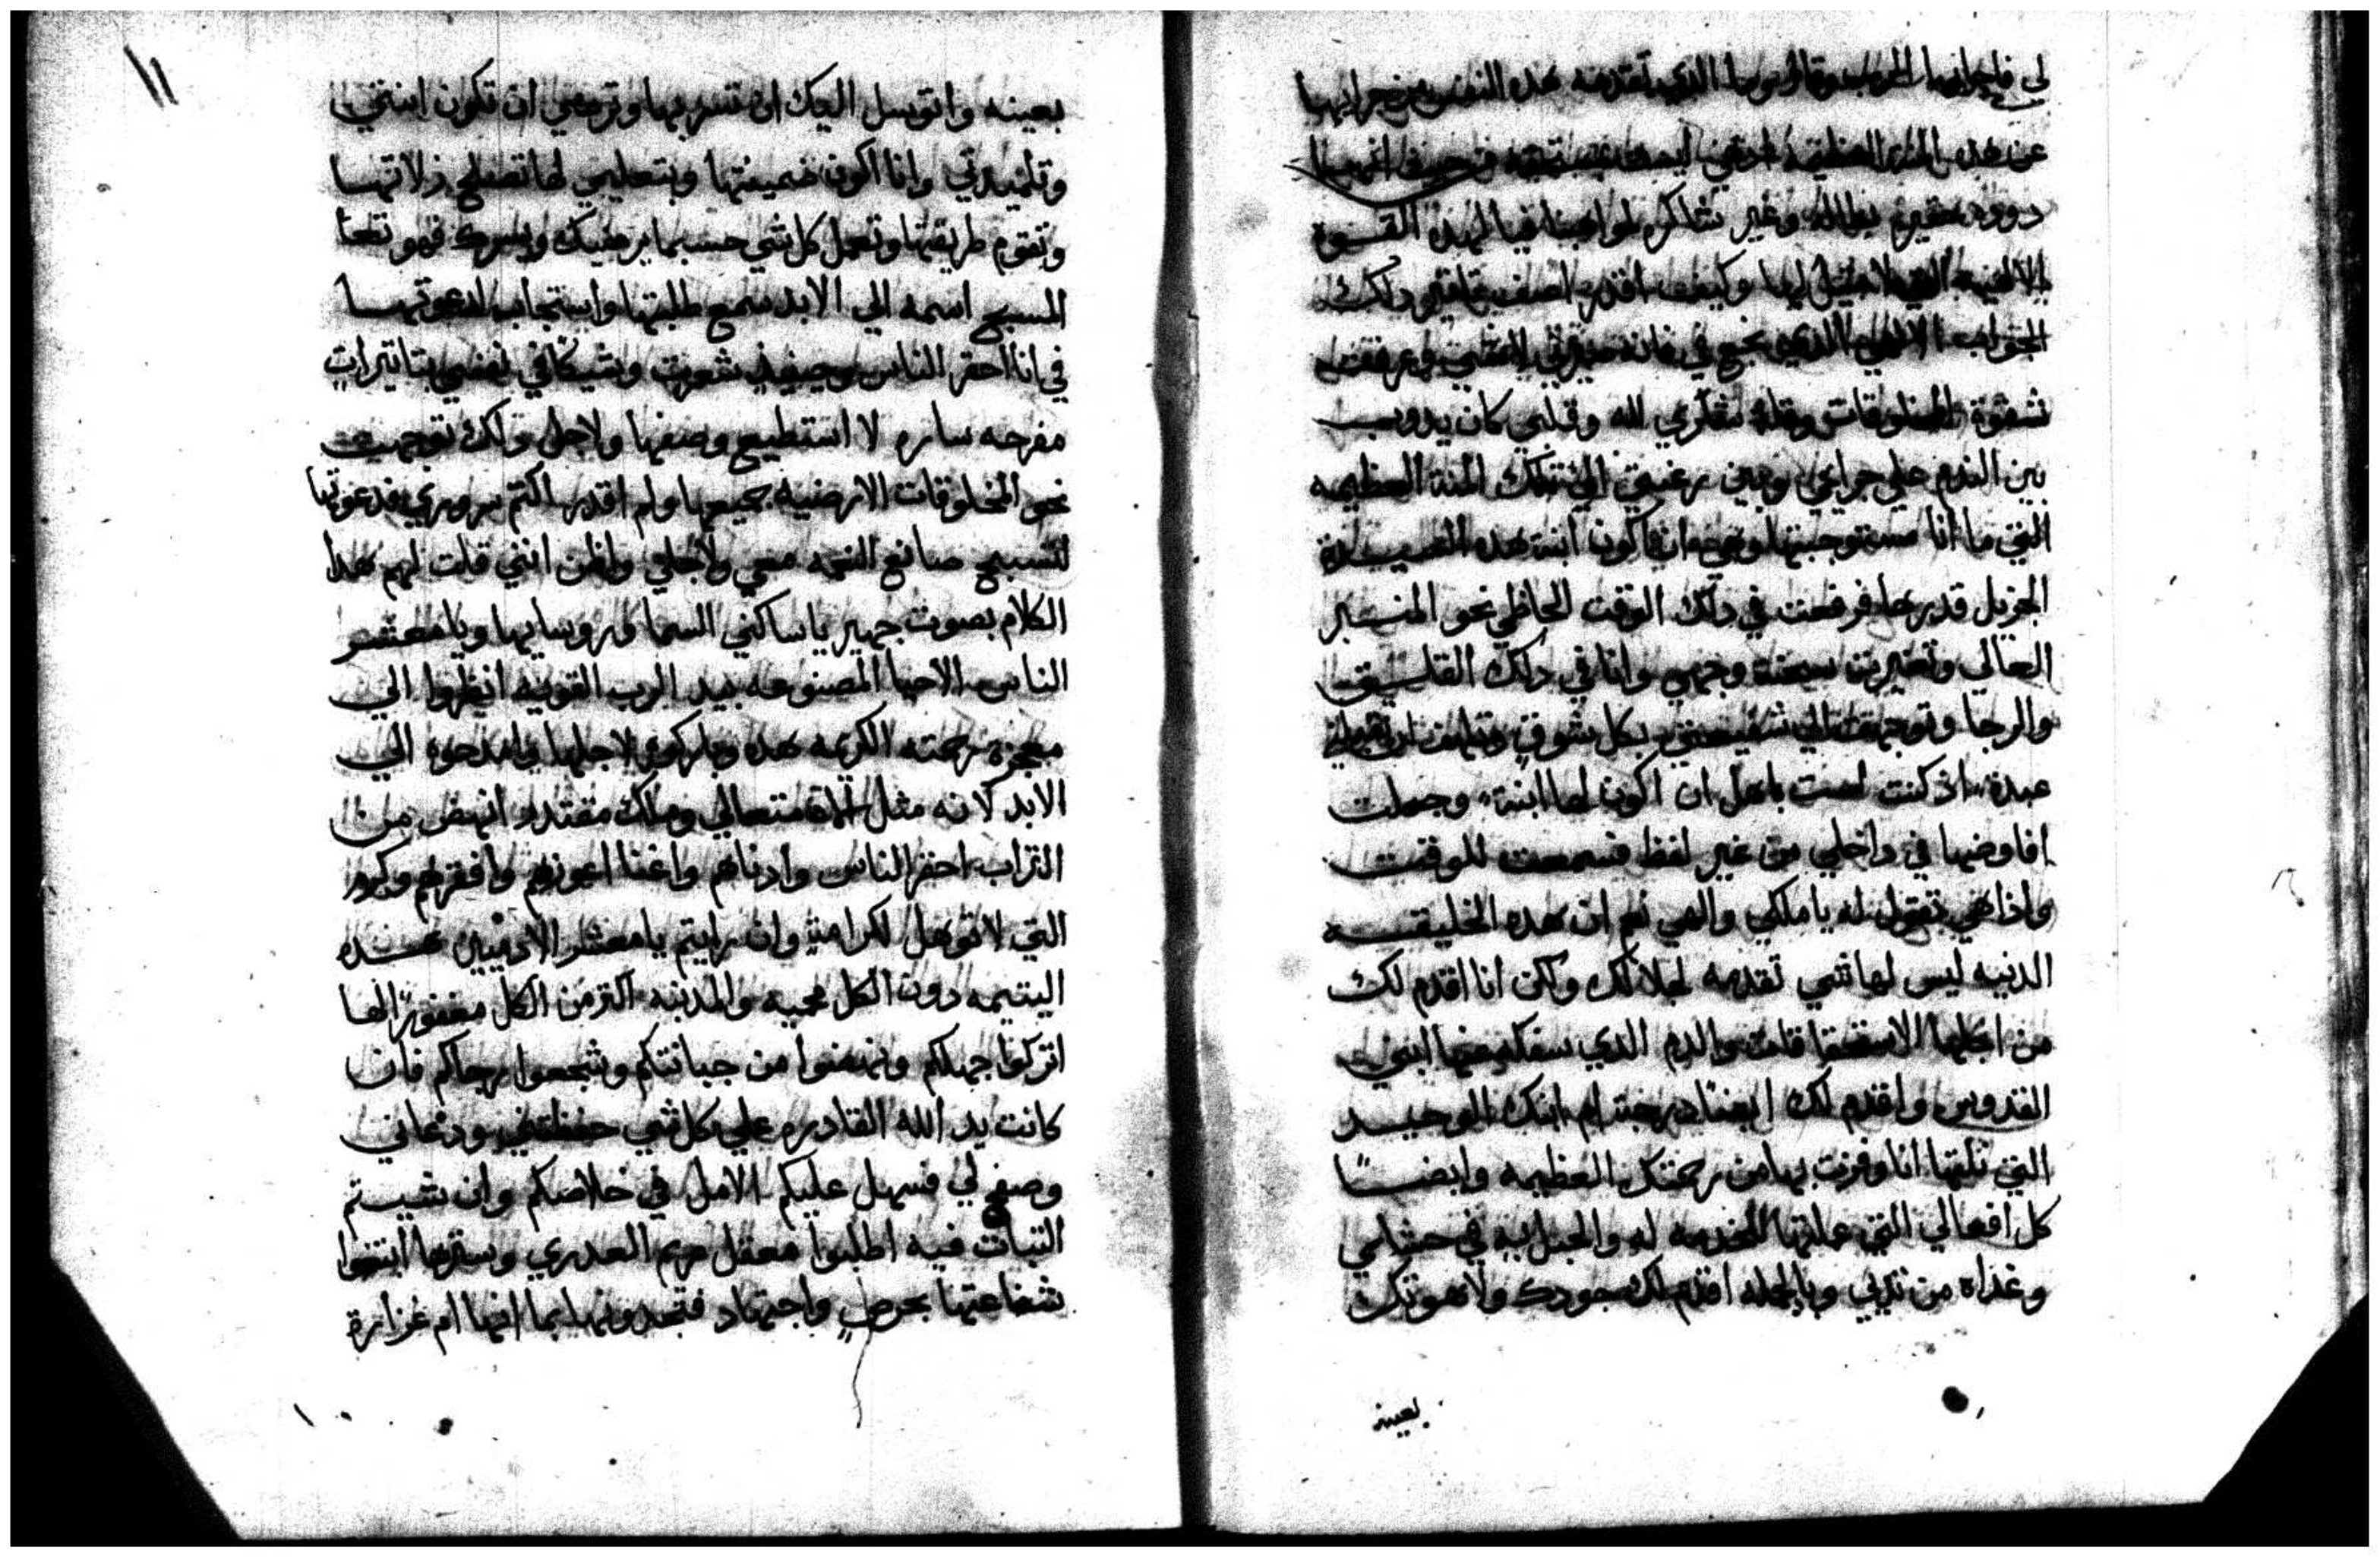 لي فاجابها الرب وقال وما الذي تقدمه هده النفس من جرايها
عن هده المنه العظيمه
دوده حقيره بطاله وغير شاكره لمواهبنا فيالهده القسوة
وكيف اقدر اصف تاتير دلك
الجواب الالهي الذي
شقوة المخلوقات وقلة شكري لله وقلبي كان يدوب
بين الندم علي جرايمي وبين رغبتي الي تلك المنة العظيمه
التي ما انا مستوجبتها وهي ان اكون ابنة هده السيدة
الجزيل قدرها فرفعت في دلك الوقت الحاظي نحو المنبر
العالي وتغيرت سحنة وجهي وانا في دلك القلق
والرجا وتوجهت الي شفيعتي بكل شوق
عبدة اذ كنت لست باهل ان اكون لها ابنة وجعلت
افاوضها في داخلي من غير لفظ فسمعت للوقت
واذا هي تقول له يا ملكي والهي نعم ان هده الخليقه
الدنيه ليس لها شي تقدمه لجلالك ولكن انا اقدم لك
من اجلها الاستحقاقات والدم الدي سفكه عنها ابني
القدوس واقدم لك ايضًا درجة ام ابنك الوحيد
التي نلتها انا وفزت بها من رحمتك العظيمه وايضًا
كل افعالي التي عملتها للخدمه له والحبل به في حشاي
وغداه من تديي وبالجمله اقدم لك جودك ولاهوتك
بعينه
١١
بعينه واتوسل اليك ان تسر بها وترضي ان تكون ابنتي
وتلميدتي وانا اكون ضمينتها وبتعليمي لها تصلح زلاتها
وتقوم طريقتها وتعمل كل شي حسبما يرضيك ويسرك فهو تعا
المسبح اسمه الي الابد سمع طلبتها واستجاب لدعوتها
في انا احقر الناس وحينيذ شعرت وشيكا في نفسي بتاتيرات
مفرحه ساره لا استطيع وصفها ولاجل دلك توجهت
نحو المخلوقات الارضيه جميعها ولم اقدر اكتم سروري فدعوتها
لتسبح صانع النعمه معي ولاجلي واظن انني قلت لهم هدا
الكلام بصوت جهير يا ساكني السما وروسايها ويا معشر
الناس الاحيا المصنوعه بيد الرب القويه انظروا الي
معجزة رحمته الكريمه هده وباركوه لاجلها وامدحوه الي
الابد لانه مثل الاه متعالي وملك مقتدر انهض من
التراب احقر الناس وادناهم واغنا اعوزهم وافقرهم وكرم
التي لا توهل لكرامةٍ وان رايتم يا معشر الادميين هده
اليتيمه دون الكل محميه والمدنبه اكتر من الكل مغفورًا لها
اتركوا جهلكم وانهضوا من جبانتكم وشجعوا رجاكم فان
كانت يد الله القادره علي كل شي حفظتني ودعاني
وصفح لي فسهل عليكم الامل في خلاصكم وان شيتم
التبات فيه اطلبوا معقل مريم العدري وسترها ابتغوا
شفاعتها بحرصٍ واجتهاد فتجدونها بما انها ام غزارة